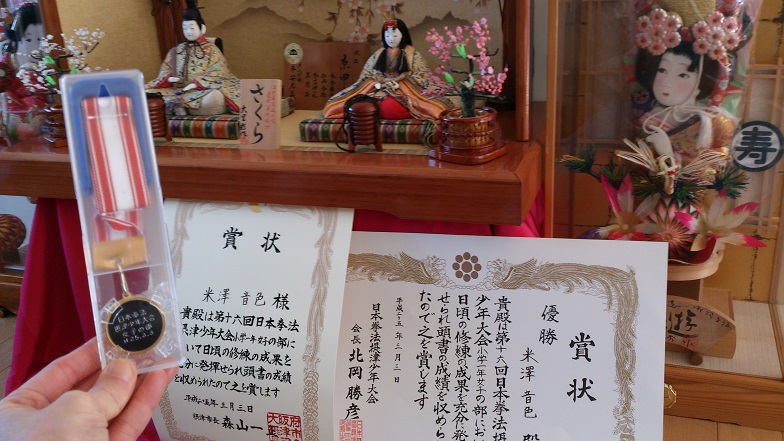 さくら
大里彩
寿
賞状
米澤音色様
貴殿は第十六回日本拳法
摂津少年大会小学一年女子の部に
いて日頃の修練の成果を
分に発揮せられ頭書の成績
を収められたので之を賞します
平成二十五年三月三日
摂津市長 森山一
賞状
優勝
米澤音色殿
貴殿は第十六回日本拳法摂
少年大会小学一年女子の部にお
日頃の修練の成果を充分発
せられ頭書の成績を収めら
たので之を賞します
平成二十五年三月三日
日本拳法摂津少年大会
会長 北岡勝彦
日本拳法
摂津少年大会
女子の部
H25.3.3